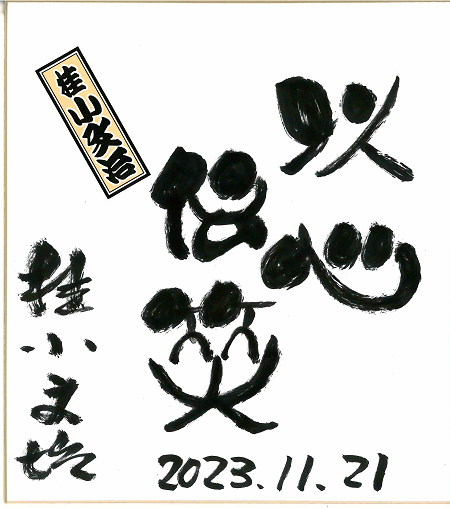 以心
伝笑
桂小文治
桂小文治
2023.11.21